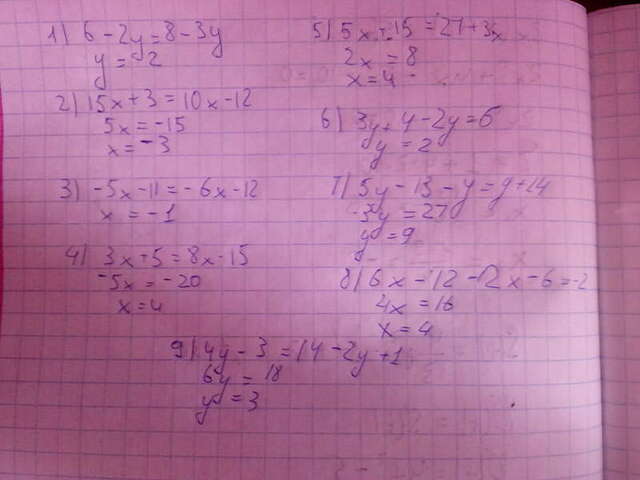 1) 6 - 2y = 8 - 3y
y = 2
2) 15x + 3 = 10x - 12
5x = -15
x = -3
3) -5x - 11 = -6x - 12
x = -1
4) 3x + 5 = 8x - 15
-5x = -20
x = 4
5) 5x + 15 = 27 + 3x
2x = 8
x = 4
6) 3y + y - 2y = 6
y = 2
7) 5y - 13 - y = y + 14
3y = 27
y = 9
8) 6x - 12 - 2x - 6 = -2
4x = 16
x = 4
9) 4y - 3 = 14 - 2y + 1
6y = 18
y = 3